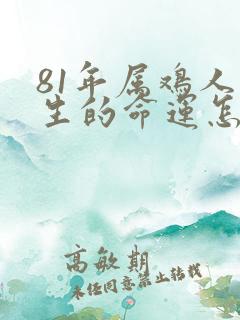 81年属鸡人
生的命运怎
高敏期
未经同意禁止转载